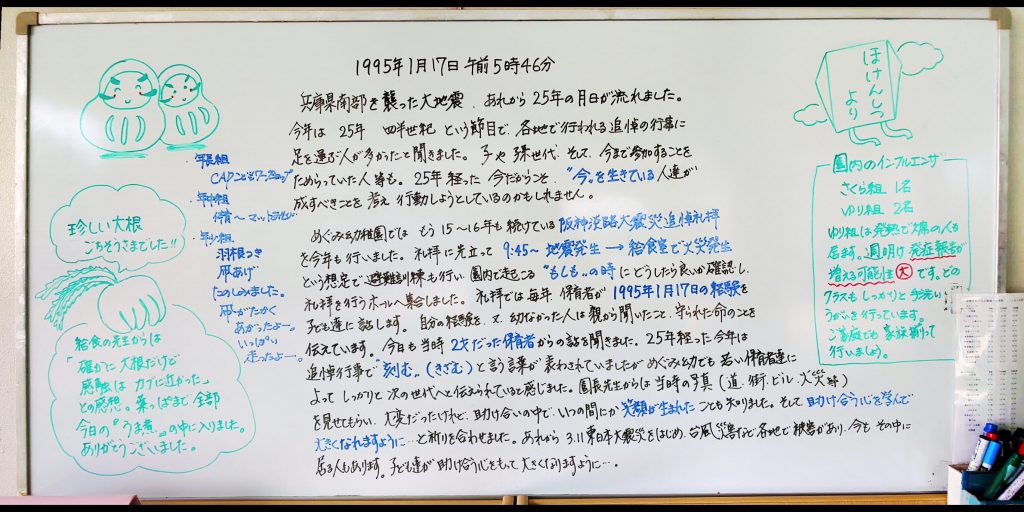 1995年1月17日 午前5時46分
兵庫県南部を襲った大地震、あれから25年の月日が流れました。
今年は 25年 四半世紀 という節目で、各地で行われる追悼の行事に
足を運ぶ人が多かったと聞きました。子や孫世代、そして、今まで参加することを
ためらっていた人等も。25年経った今だからこそ、"今"を生きている人達が
成すべきことを考え 行動しようとしているのかもしれません。
めぐみ幼稚園では もう15〜16年も続けている 阪神淡路大震災追悼礼拝
を今年も行いました。礼拝に先立って 9:45〜 地震発生 → 給食室で火災発生
という想定で、避難訓練も行い、園内で起こる "もしも"の時 にどうしたら良いか確認し、
礼拝を行うホールへ集合しました。礼拝では毎年、保育者が 1995年1月17日の経験を
子ども達に話します。自分の経験を、又、幼なかった人は親から聞いたこと、守られた命のことを
伝えています。今日も当時 2才だった保育者からの話を聞きました。25年経った今年は
追悼行事で "刻む"(きざむ) と言う言葉が表わされていましたが めぐみ幼でも 若い保育者達に
よって しっかりと 次の世代へと伝えられていると感じました。園長先生からは 当時の写真(道・街・ビル・火災等)
を見せてもらい、大変だったけれど、助け合いの中で、いつの間にか 笑顔が生まれた ことも知りました。そして 助け合う心を学んで
大きくなれますように…と祈りを合わせました。あれから 3.11 東日本大震災をはじめ、台風災害などで各地で被害があり、今も その中に
居る人もあります。子ども達が 助け合う心をもって 大きくなりますように…。
・年長組
CAPこどもワークショップ
・年中組
体育〜マットあそび
・年少組
羽根つき
凧あげ
たのしみました。
凧がたかく
あがったよー。
いっぱい
走ったよー。
珍しい大根
ごちそうさまでした!!
給食の先生からは
「確かに大根だけど
感触は カブに近かった」
との感想。葉っぱまで全部
今日の『うま煮』の中に入りました。
ありがとうございました。
ほけんしつ
より
園内のインフルエンザ
さくら組 1名
ゆり組 2名
ゆり組は発熱で欠席の人も
居ます。週明け 発症報告が
増える可能性 大 です。どの
クラスもしっかりと手洗い
うがいを行っています。
ご家庭でも 家族揃って
行いましょう。